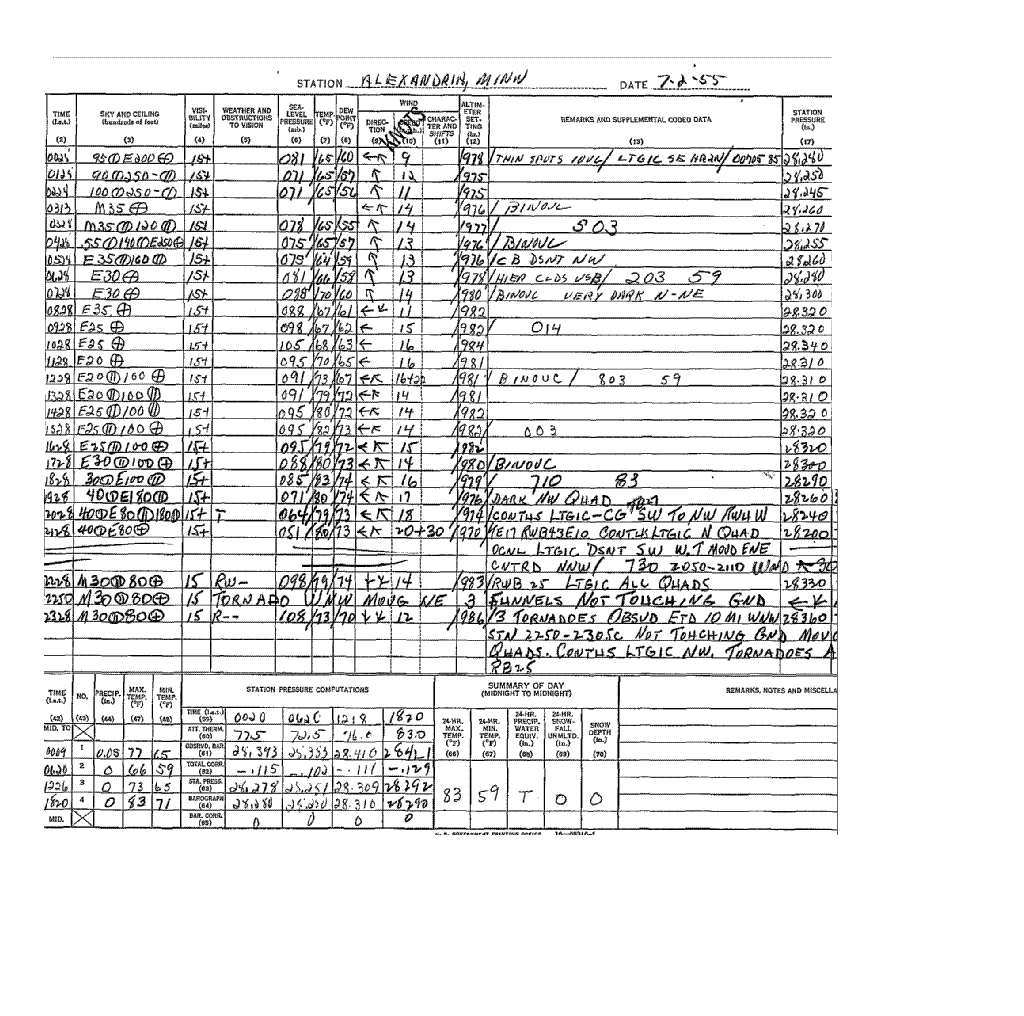 STATION ALEXANDRIA, MINN DATE 7-2-55
TIME (l.s.t.) (2) SKY AND CEILING (hundreds of feet) (3) VISIBILITY (miles) (4) WEATHER AND OBSTRUCTIONS TO VISION (5) SEA-LEVEL PRESSURE (mb.) (6) TEMP. (°F) (7) DEW POINT (°F) (8) WIND DIRECTION (9) KNOTS (10) CHARACTER AND SHIFTS (11) ALTIMETER SETTING (in.) (12) REMARKS AND SUPPLEMENTAL CODED DATA (13) STATION PRESSURE (in.) (17)
0028 95⦶E200⊕ 15+ 081 /65/60 ←↖ 9 /978 /THIN SPOTS IOVC/ LTGIC SE 28.280
0128 90⦶250-⦶ 15+ 071 /65/59 ↖ 12 /975 28.250
0228 100⦶250-⦶ 15+ 071 /65/56 ↖ 11 /975 28.245
0313 M35⊕ 15+ ←↖ 14 /976 / BINOVC 28.260
0328 M35⦶120⦶ 15+ 078 /65/55 ↖ 14 /977 / 503 28.270
0428 55⦶140⦶E250⊕ 15+ 075 /65/57 ↖ 13 /976 /BINOVC 28.255
0528 E35⦶160⦶ 15+ 075 /64/59 ↖ 13 /976 /CB DSNT NW 28.260
0628 E30⊕ 15+ 081 /66/58 ↖ 13 /978 /HIER CLDS VSB/ 203 59 28.280
0728 E30⊕ 15+ /70/60 ↖ 14 /980 /BINOVC VERY DARK N-NE 28.300
0828 E35⊕ 15+ 088 /67/61 ←↙ 11 /982 28.320
0928 E25⊕ 15+ 098 /67/62 ← 15 /982 / 014 28.320
1028 E25⊕ 15+ 105 /68/63 ← 16 /984 28.340
1128 E20⊕ 15+ 095 /70/65 ← 16 /981 28.310
1228 E20⦷100⊕ 15+ 091 /73/67 ←↖ 16+22 /981 / BINOVC / 803 59 28.310
1328 E20⦷100⦷ 15+ 091 /79/72 ←↖ 14 /981 28.310
1428 E25⦷100⦷ 15+ 095 /80/72 ←↖ 14 /982 28.320
1528 E25⦷100⊕ 15+ 095 /82/73 ←↖ 14 /982 / 003 28.320
1628 E25⦷100⊕ 15+ 095 /79/72 ←↖ 15 /982 28320
1728 E30⦷100⊕ 15+ 088 /80/73 ←↖ 14 /980 /BINOVC 28300
1828 30⦶E100⦷ 15+ 085 /83/74 ←↖ 16 /979 / 710 83 28290
1928 40⦶E180⦷ 15+ 071 /80/74 ←↖ 17 /976 /DARK NW QUAD 28260
2028 40⦶E80⦷180⦷ 15+ T 064 /79/73 ←↖ 18 /974 /CONTUS LTGIC-CG SW TO NW RWU W 28240
2128 40⦶E80⊕ 15+ 051 /80/73 ←↖ 20+30 /970 CONTUS LTGIC N QUAD 28200
OCNL LTGIC DSNT SW W. T MOVD ENE
CNTRD NNW/ 730 2050-2110 WND ↖30
2228 M30⦷80⊕ 15 RW- 098 /79/74 ↙↙ 14 /983 /RWB 25 LTGIC ALL QUADS 28330
2250 M30⦷80⊕ 15 TORNADO WNW MOVG NE 3 FUNNELS NOT TOUCHING GND ←↙
2328 M30⦷80⊕ 15 R-- 108 /73/70 ↙↙ 12 /986 /3 TORNADOES OBSVD ETD 10 MI WNW 28360
STN 2250-2305C NOT TOUCHING GND MOV
QUADS. CONTUS LTGIC NW. TORNADOES A
RB25
TIME (l.s.t.) (42) NO. (43) PRECIP. (in.) (44) MAX. TEMP. (°F) (47) MIN. TEMP. (°F) (48) STATION PRESSURE COMPUTATIONS SUMMARY OF DAY (MIDNIGHT TO MIDNIGHT) REMARKS, NOTES AND MISCELLA
TIME (l.s.t.) (59) 0020 0620 1218 1820 24-HR. MAX. TEMP. (°F) (66) 24-HR. MIN. TEMP. (°F) (67) 24-HR. PRECIP. WATER EQUIV. (in.) (68) 24-HR. SNOW-FALL UNMLTD. (in.) (69) SNOW DEPTH (in.) (70)
MID. TO ATT. THERM. (60) 77.5 72.5 76.0 83.0
0009 1 0.08 77 65 OBSRVD. BAR. (61) 28.393 28.353 28.410
0620 2 0 66 59 TOTAL CORR. (62) -.115 -.102 -.111 -.129
1226 3 0 73 65 STA. PRESS. (63) 28.278 28.251 28.309 28292
1820 4 0 83 71 BAROGRAPH (64) 28.280 28.310 28290 83 59 T 0 0
MID. BAR. CORR. (65) 0 0 0 0